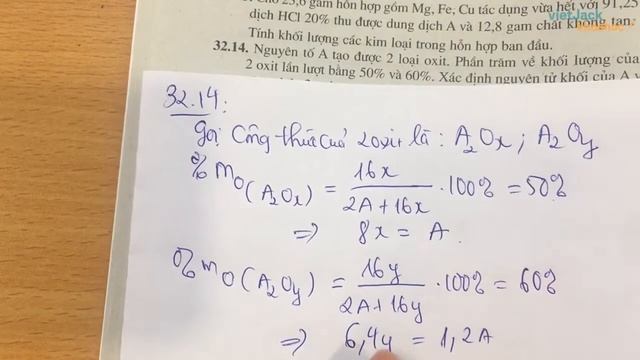 23,6 gam hỗn hợp gồm Mg, Fe, Cu tác dụng vừa hết với 91,25
dịch HCl 20% thu được dung dịch A và 12,8 gam chất không tan.
vietJack
Tính khối lượng các kim loại trong hỗn hợp ban đầu.
32.14. Nguyên tố A tạo được 2 loại oxit. Phần trăm về khối lượng của
2 oxit lần lượt bằng 50% và 60%. Xác định nguyên tử khối của A v
32.14:
Gọi Công thức của 2 oxit là : A₂Oₓ ; A₂Oy
%mO(A₂Oₓ) = 16x / (2A + 16x) · 100% = 50%
=> 8x = A.
%mO(A₂Oy) = 16y / (2A + 16y) · 100% = 60%
=> 6,4y = 1,2A